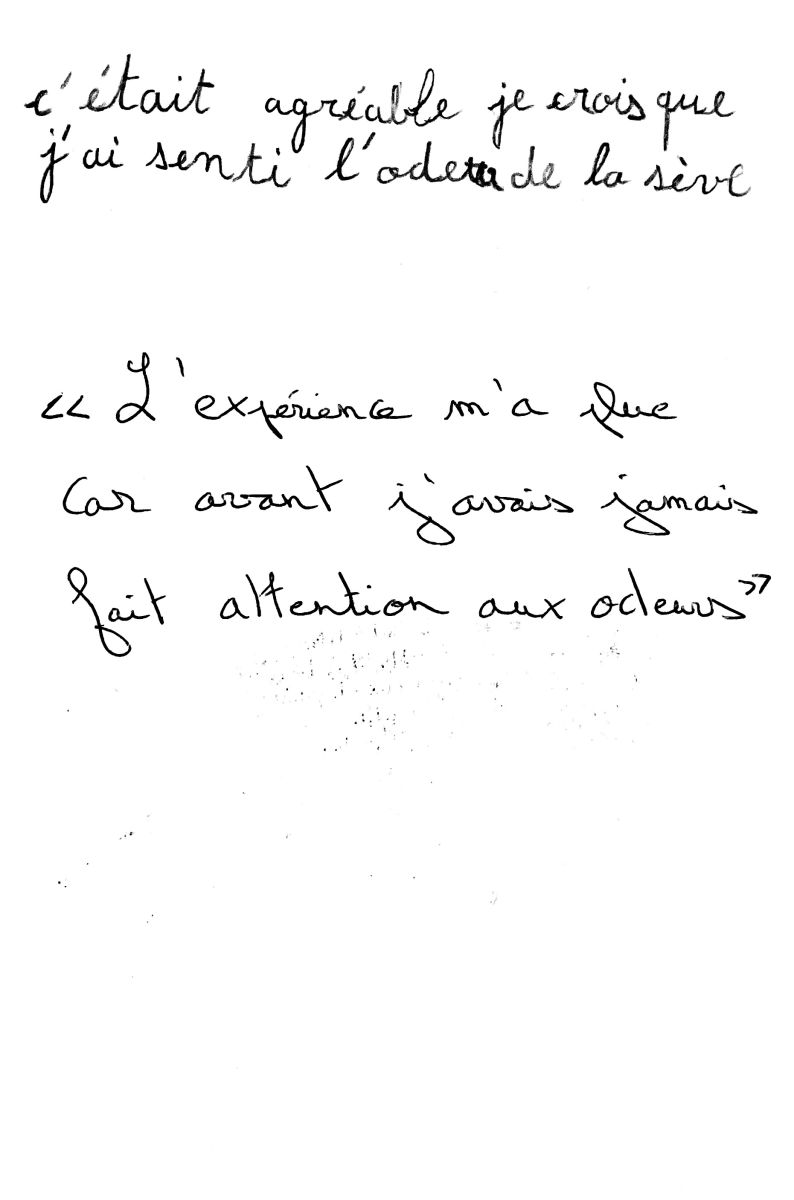 c'était agréable je crois que
j'ai senti l'odeur de la sève
« L'expérience m'a plue
Car avant j'avais jamais
fait attention aux odeurs »